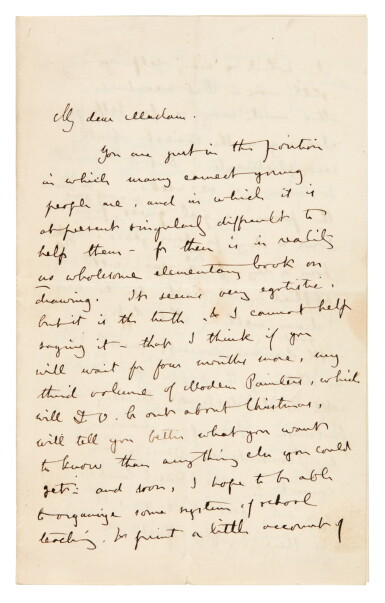 My dear Madam.
You are just in the position
in which many earnest young
people are, and in which it is
at present singularly difficult to
help them - for there is in reality
no wholesome elementary book on
drawing. It seems very egotistic.
but it is the truth & I cannot help
saying it - that I think if you
will wait for four months more, my
third volume of Modern Painters, which
will D.V. be out about Christmas,
will tell you better what you want
to know than anything else you could
get: and soon, I hope to be able
to organize some system of school
teaching. to print a little account of